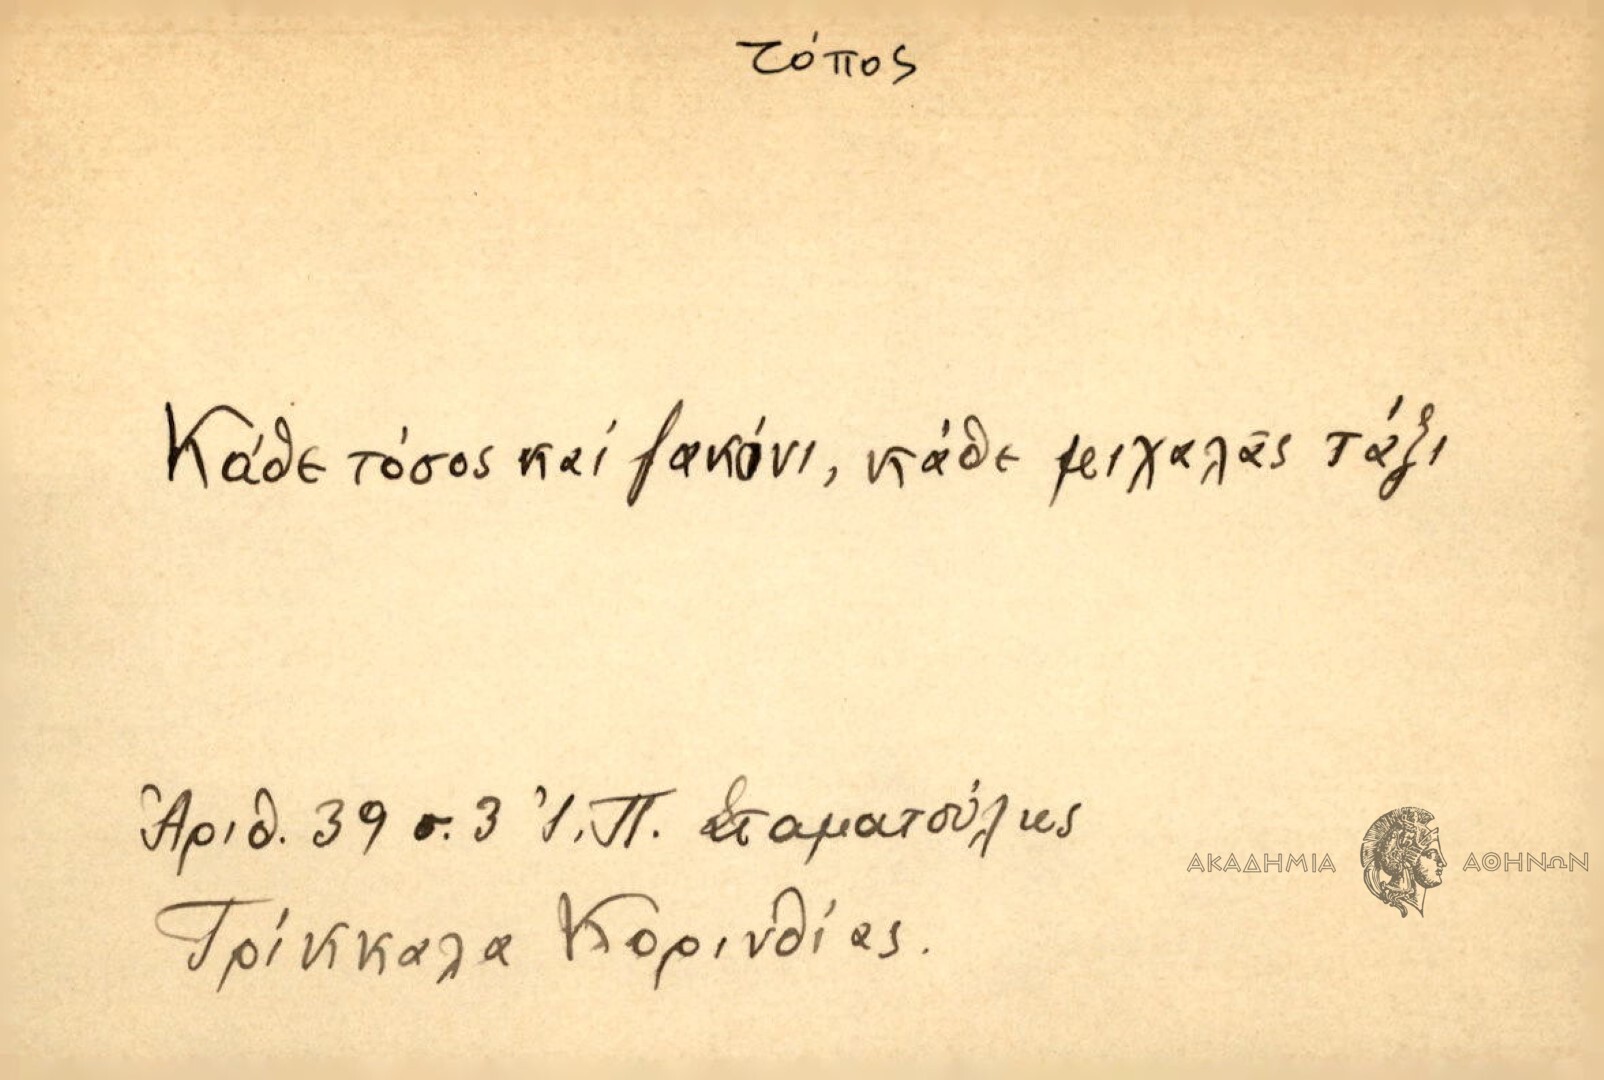 τόπος
Κάθε τόσος καί ζακόνι, κάθε μαχαλᾶς τάξι
Ἀριθ. 39 σ. 3 Ἰ. Π. Σταματούλης
Τρίκκαλα Κορινθίας.
ΑΚΑΔΗΜΙΑ ΑΘΗΝΩΝ